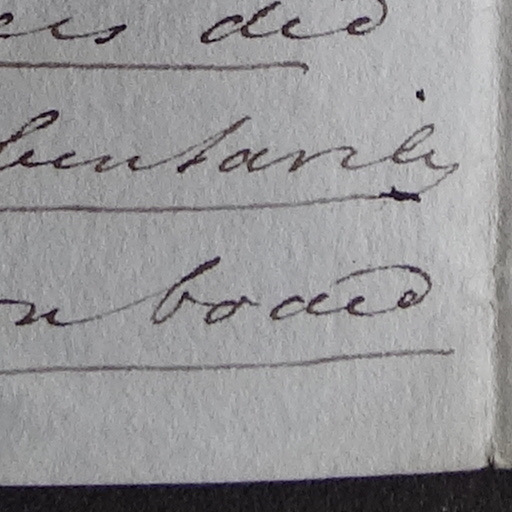 did
luntarily
n board